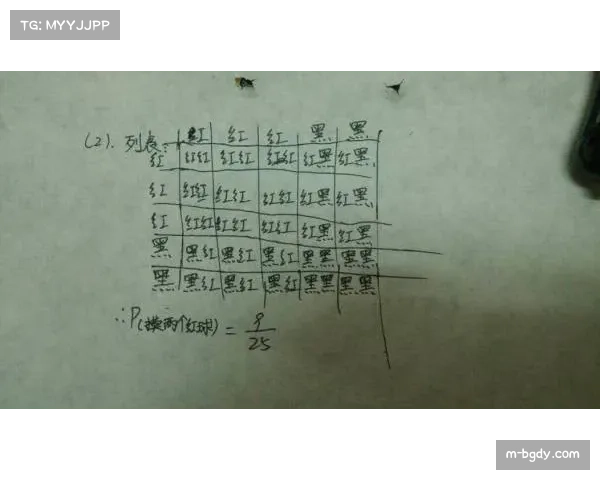 TG: MYYJJPP
(2). 列表:
红 红 红 黑 黑
红 红红 红红 红红 红黑 红黑
红 红红 红红 红红 红黑 红黑
红 红红 红红 红红 红黑 红黑
黑 黑红 黑红 黑红 黑黑 黑黑
黑 黑红 黑红 黑红 黑黑 黑黑
∴P(摸两个红球) = 9/25
m-bgdy.com